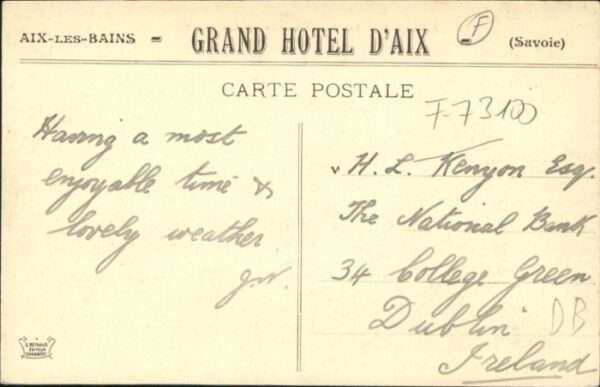 AIX-LES-BAINS - GRAND HOTEL D'AIX F (Savoie)
CARTE POSTALE
F-73100
Having a most
enjoyable time &
lovely weather
H. L. Kenyon Esq.
The National Bank
34 College Green
Dublin DB
Ireland